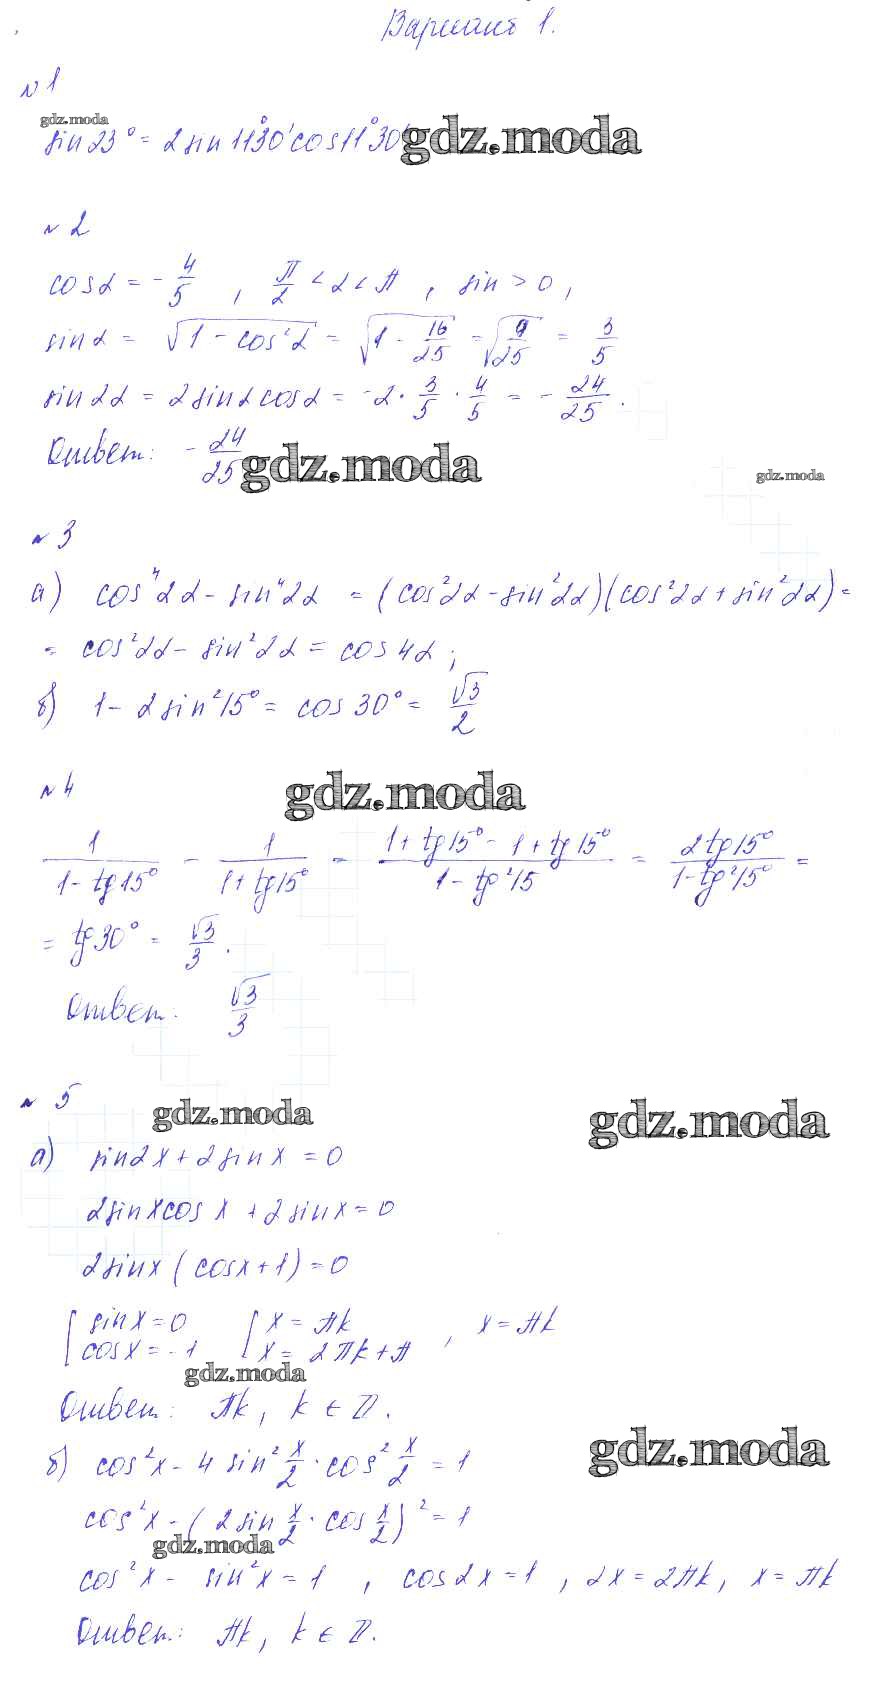 Вариант 1.
№1
gdz.moda
sin 23° = 2 sin 11°30' cos 11°30' gdz.moda
№2
cos α = - 4/5 , π/2 < α < π , sin > 0 ,
sin α = √(1 - cos²α) = √(1 - 16/25) = √(9/25) = 3/5
sin 2α = 2 sin α cos α = -2 · 3/5 · 4/5 = - 24/25 .
Ответ: - 24/25 gdz.moda
gdz.moda
№3
а) cos⁴2α - sin⁴2α = (cos²2α - sin²2α)(cos²2α + sin²2α) =
= cos²2α - sin²2α = cos 4α ;
б) 1 - 2 sin²15° = cos 30° = √3/2
№4
gdz.moda
1/(1 - tg15°) - 1/(1 + tg15°) = (1 + tg15° - 1 + tg15°)/(1 - tg²15) = 2tg15°/(1 - tg²15°) =
= tg 30° = √3/3 .
Ответ: √3/3
№5
gdz.moda
gdz.moda
а) sin 2x + 2 sin x = 0
2 sin x cos x + 2 sin x = 0
2 sin x (cos x + 1) = 0
[ sin x = 0 [ x = πk , x = πk
cos x = -1 x = 2πk + π
gdz.moda
Ответ: πk, k ∈ Z.
gdz.moda
б) cos²x - 4 sin² x/2 · cos² x/2 = 1
cos²x - (2 sin x/2 · cos x/2)² = 1
gdz.moda
cos²x - sin²x = 1 , cos 2x = 1 , 2x = 2πk, x = πk
Ответ: πk, k ∈ Z.